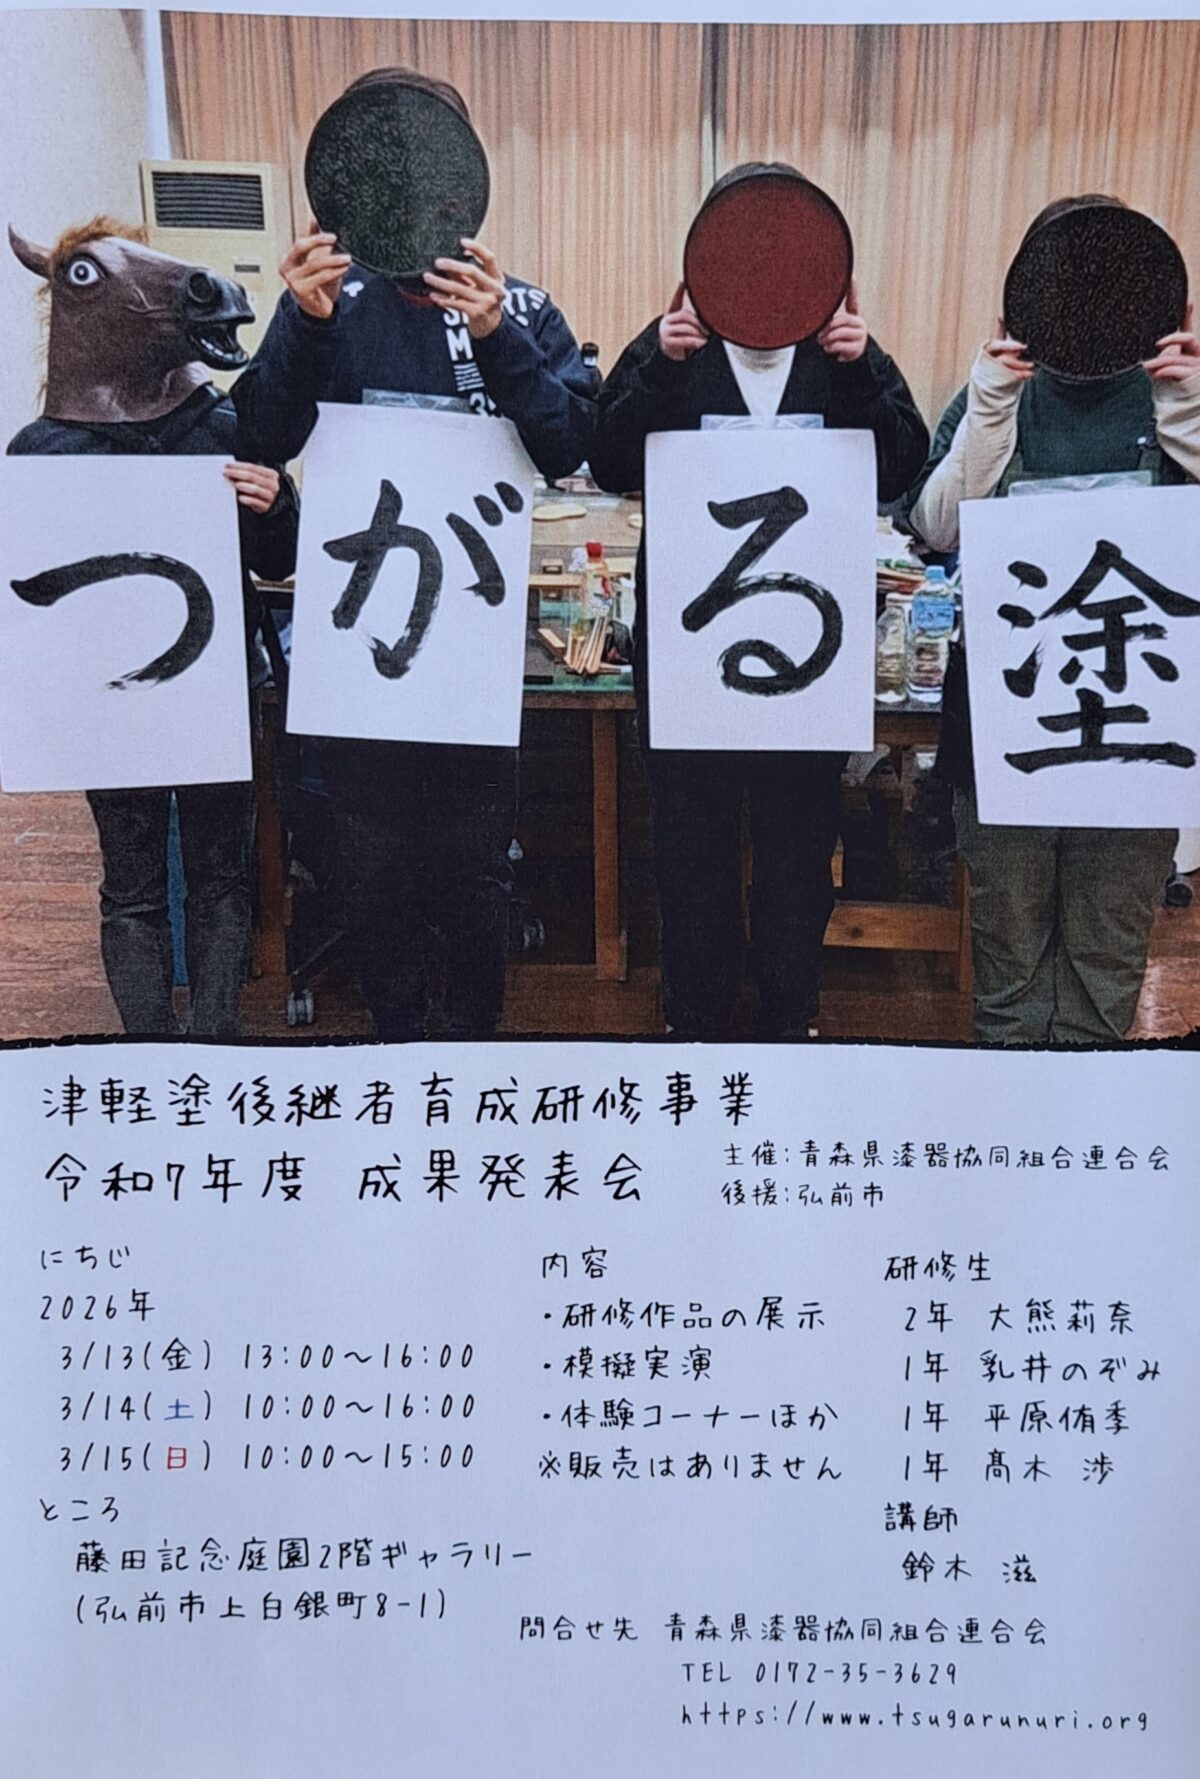 つがる塗
津軽塗後継者育成研修事業
令和7年度 成果発表会
主催:青森県漆器協同組合連合会
後援:弘前市
にちじ
2026年
3/13(金) 13:00~16:00
3/14(土) 10:00~16:00
3/15(日) 10:00~15:00
ところ
藤田記念庭園2階ギャラリー
(弘前市上白銀町8-1)
内容
・研修作品の展示
・模擬実演
・体験コーナーほか
※販売はありません
研修生
2年 大熊莉奈
1年 乳井のぞみ
1年 平原侑季
1年 髙木 渉
講師
鈴木 滋
問合せ先 青森県漆器協同組合連合会
TEL 0172-35-3629
https://www.tsugarunuri.org